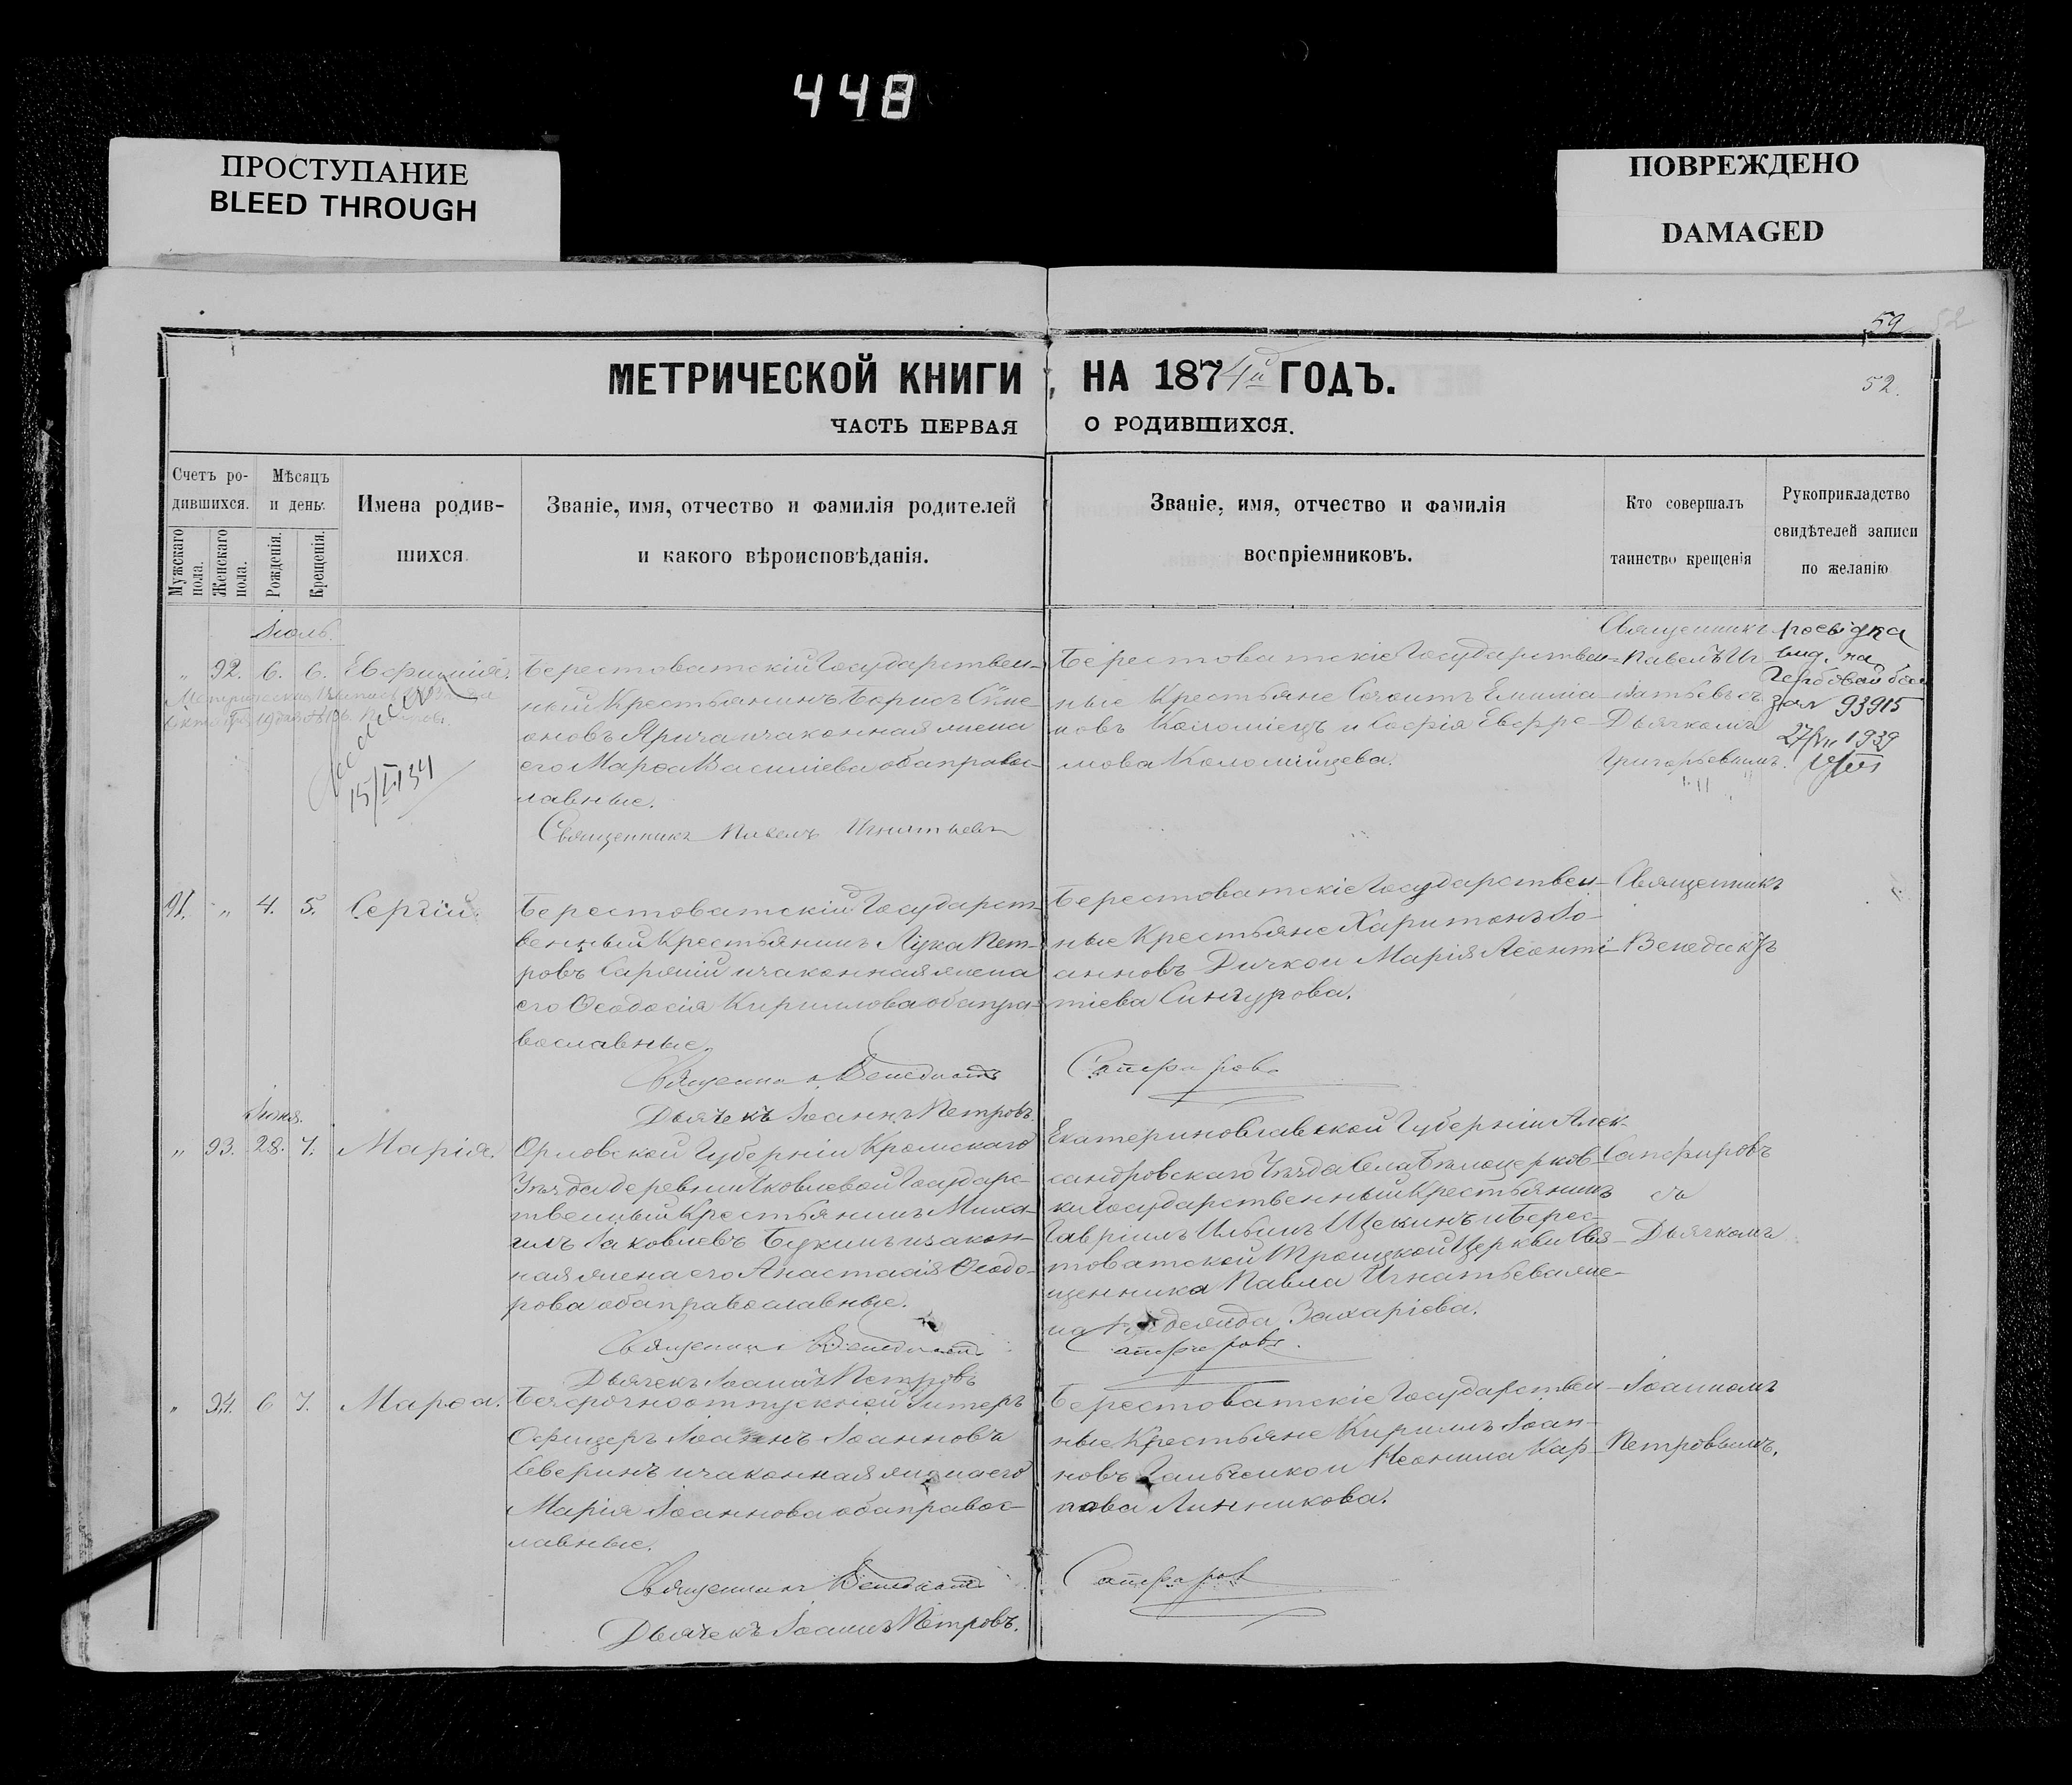 448
ПРОСТУПАНИЕ
BLEED THROUGH
ПОВРЕЖДЕНО
DAMAGED
59
52
52.
МЕТРИЧЕСКОЙ КНИГИ, НА 1874й ГОДЪ.
ЧАСТЬ ПЕРВАЯ О РОДИВШИХСЯ.
Счетъ ро-
дившихся.
Мужскаго пола.
Женскаго пола.
Мѣсяцъ
и день.
Рожденія.
Крещенія.
Имена родив-
шихся
Званіе, имя, отчество и фамилія родителей
и какого вѣроисповѣданія.
Званіе, имя, отчество и фамилія
воспріемниковъ.
Кто совершалъ
таинство крещенія
Рукоприкладство
свидѣтелей записи
по желанію
Іюль.
„ 92. 6. 6. Евфимія.
15/I 34
Берестоватскій Государствен-
ный Крестьянинъ Борисъ Симе
оновъ Ярича и законная жена
его Марѳа Василіева оба правос-
лавные.
Священникъ Павелъ Игнатьевъ
Берестоватскіе Государствен-
ные Крестьяне Созонтъ Емиліа-
новъ Коломіецъ и Софія Евфре-
мова Коломійцева.
Священникъ
Павелъ Иг-
натьевъ съ
Дьячкомъ
Григорьевымъ.
вид. на
93915
27/VII 1939
91. „ 4. 5. Сергій.
Берестоватскій Государст-
венный Крестьянинъ Лука Пет-
ровъ и законная жена
его Ѳеодосія Кириллова оба пра-
вославные.
Священникъ Венедиктъ Сапфировъ
Дьячекъ Іоаннъ Петровъ
Берестоватскіе Государствен-
ные Крестьяне Харитонъ Іо-
анновъ Дичко и Марія Леонті-
тіева Сингурова.
Священникъ
Венедиктъ
Іюня.
„ 93. 28. 7. Марія.
Орловской Губерніи Кромскаго
Уѣзда деревни Яковлевой Государс-
твенный Крестьянинъ Миха-
илъ Іаковлевъ Букинъ и закон-
ная жена его Анастасія Ѳеодо-
рова оба православные.
Священникъ Венедиктъ Сапфировъ.
Дьячекъ Іоаннъ Петровъ
Екатеринославской Губерніи Алек-
сандровскаго Уѣзда Села Бѣлоцерков-
ки Государственный Крестьянинъ
Гавріилъ Ильинъ Щекинъ и Берес-
товатской Троицкой Церкви Свя-
щенника Павла Игнатьева же-
на Захаріева.
Сапфировъ
съ
Дьячкомъ
„ 94. 6 7. Марѳа.
Безсрочноотпускной Унтеръ
Офицеръ Іоаннъ Іоанновъ
Северинъ и законная жена его
Марія Іоаннова оба правос-
лавные.
Священникъ Венедиктъ Сапфировъ
Дьячекъ Іоаннъ Петровъ.
Берестоватскіе Государствен-
ные Крестьяне Кириллъ Іоан-
новъ Гальченко и Неонила Кар-
пова Линникова.
Іоанномъ
Петровымъ.